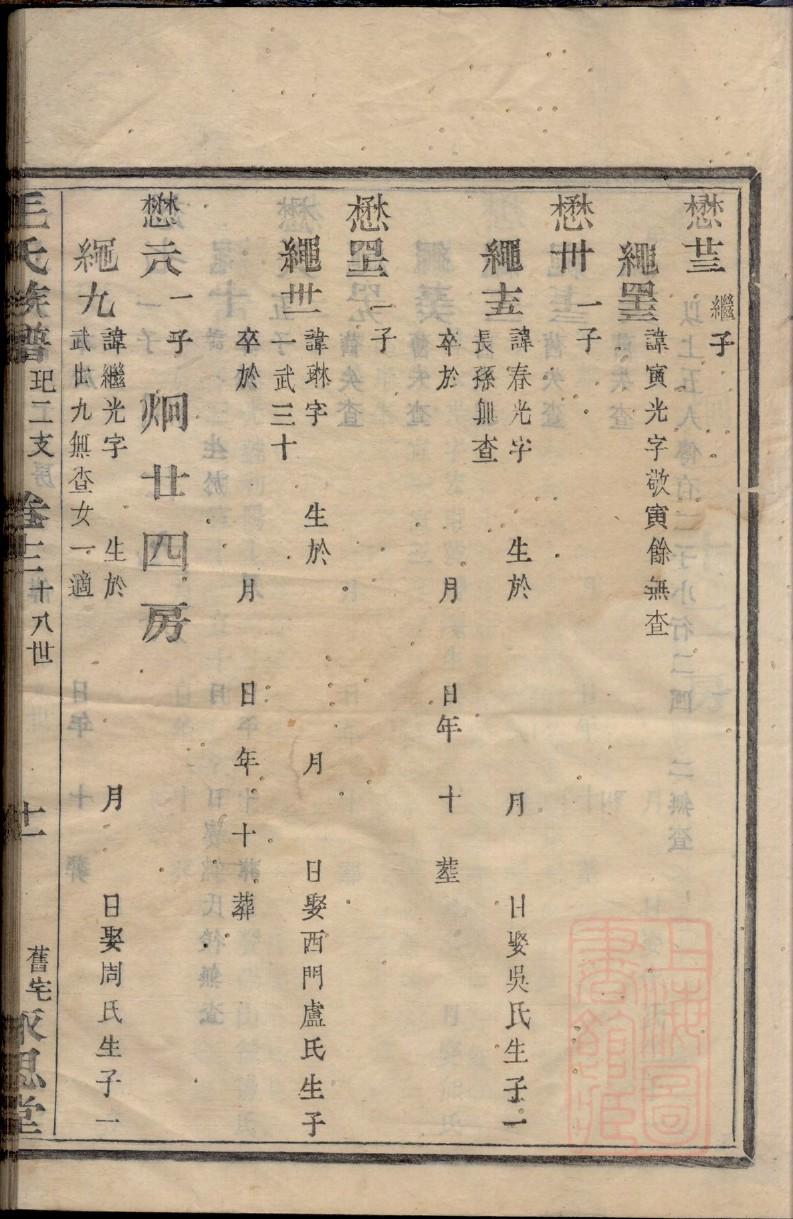 懋廿三 繼子
繩四三 諱寅光字敬寅餘無查
懋卅 一子
繩十五 諱春光字 生於 月 日娶吳氏生子一
長孫無查 卒於 月 日年 十 葬
懋四 一子
繩卅 諱琳字 生於 月 日娶西門盧氏生子
一武三十 卒於 月 日年 十 葬
懋六 一子 炯廿四房
繩九 諱繼光字 生於 月 日娶周氏生子一
武卅九無查女一適
王氏族譜 二支 卷十三 十八世 十一 舊宅 永思堂
上海圖書館藏